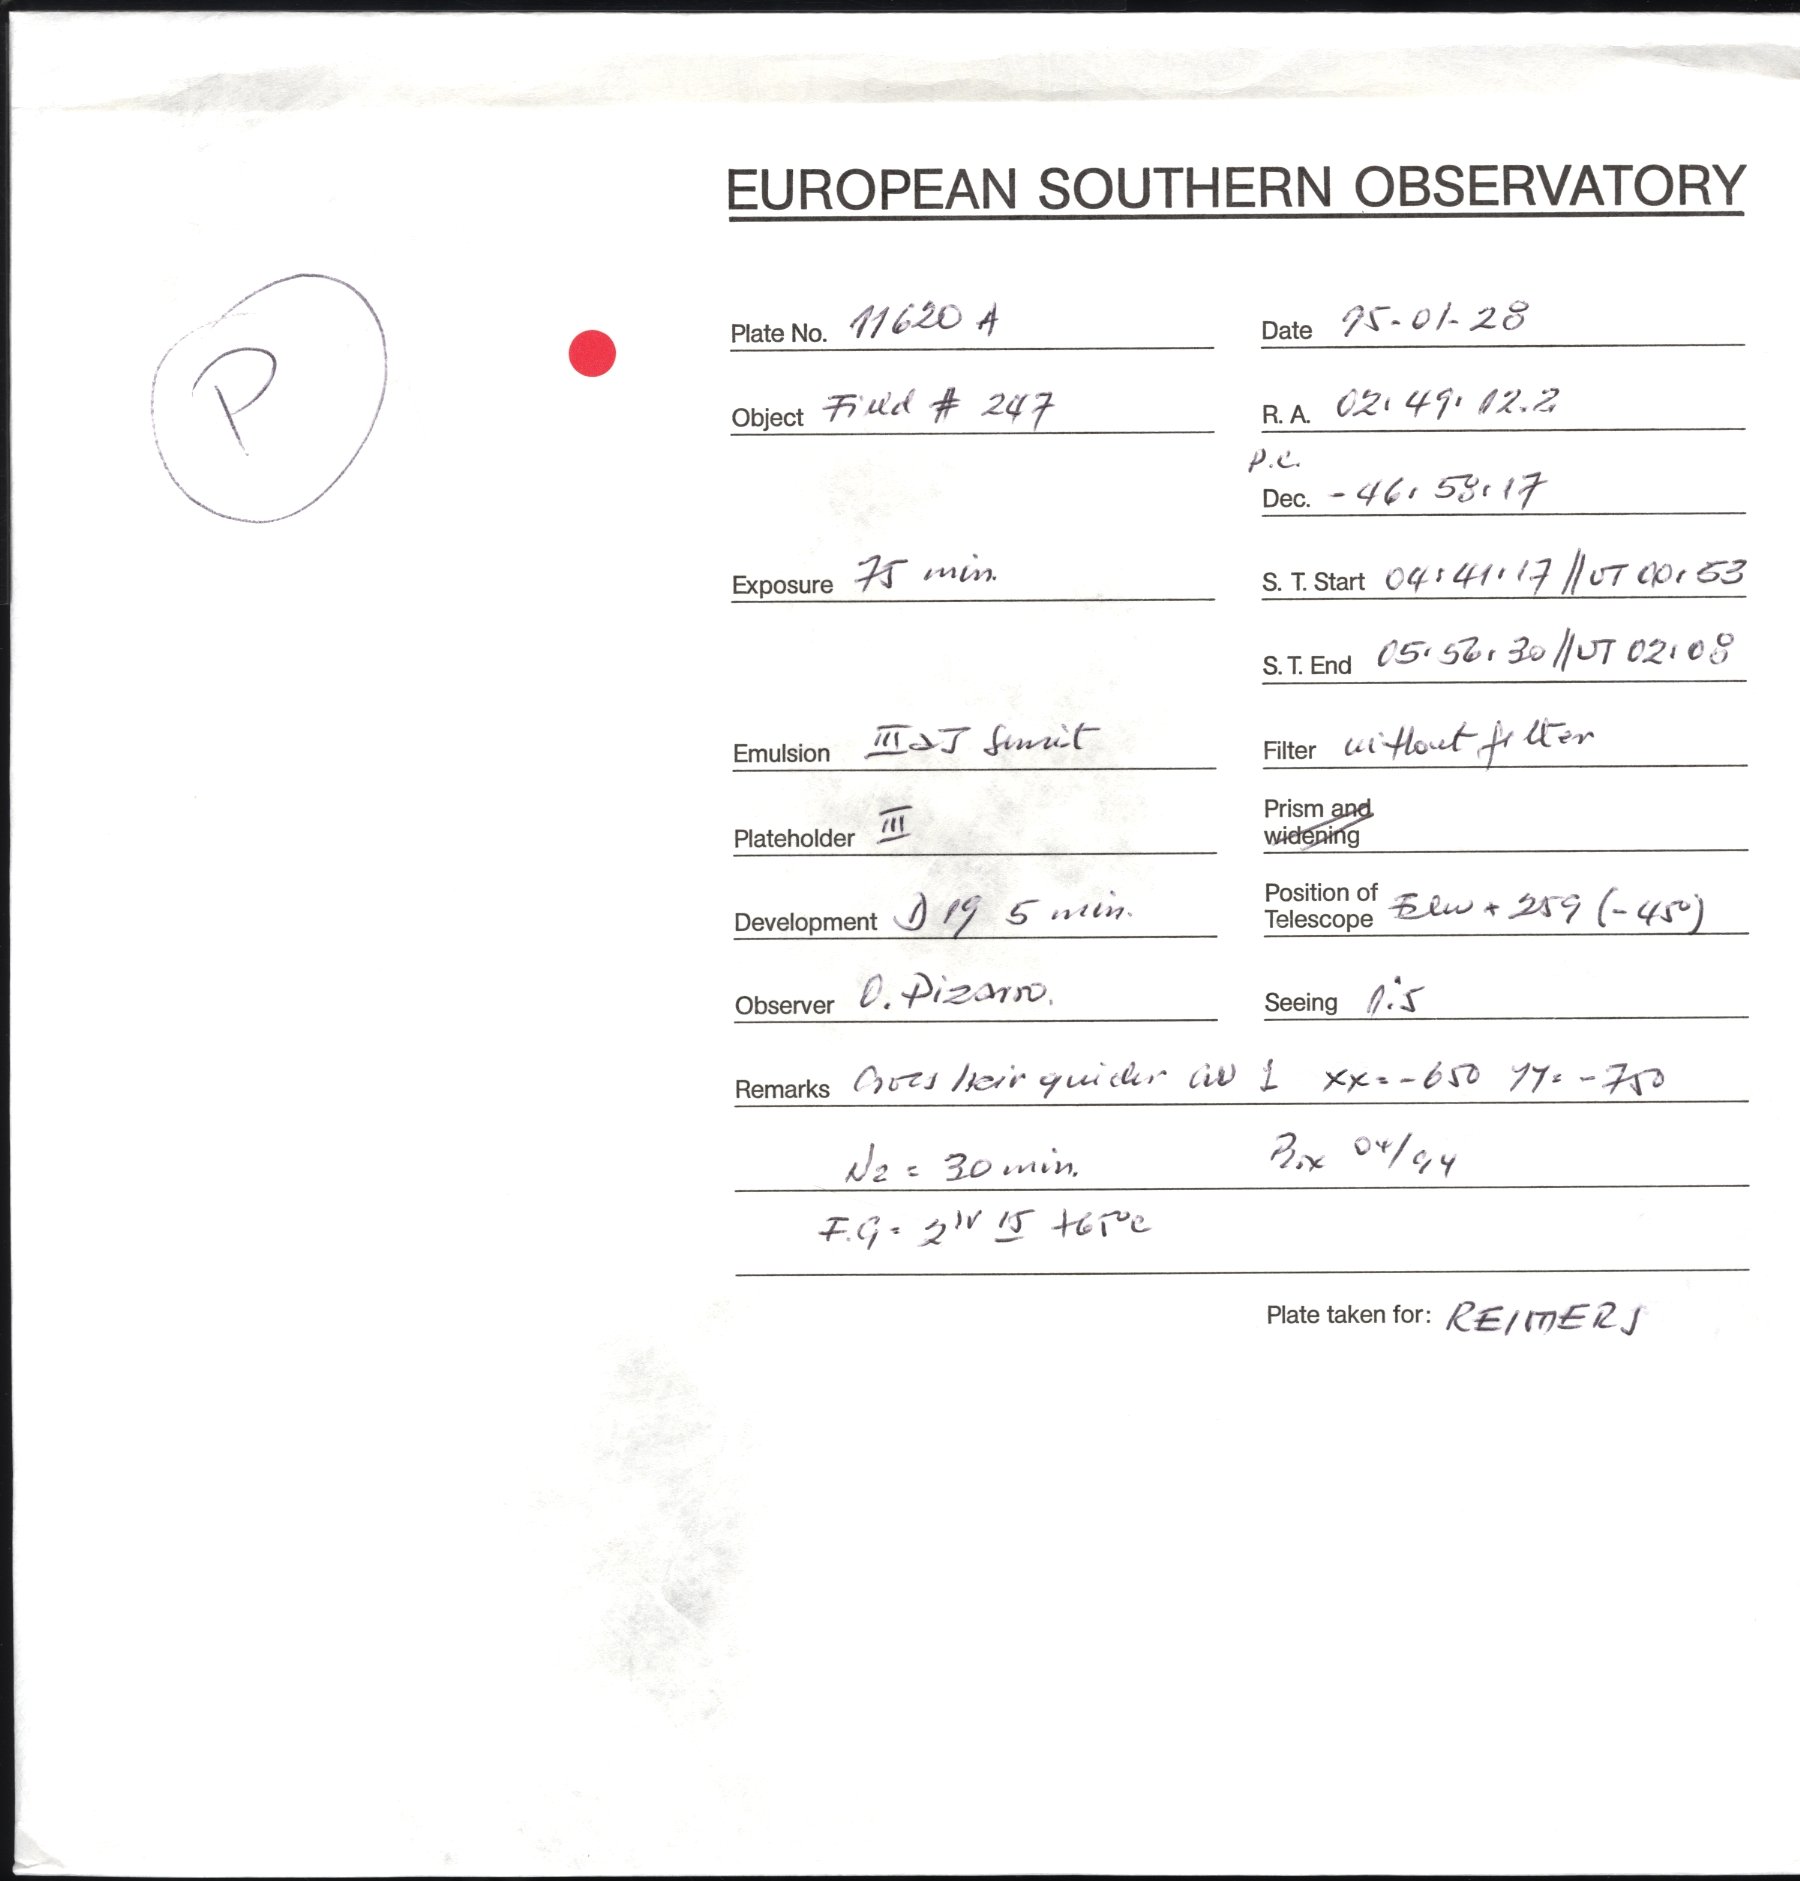 EUROPEAN SOUTHERN OBSERVATORY
P
Plate No. 11620 A
Date 95-01-28
Object Field # 247
R. A. 02: 49: 12.2
p.c.
Dec. -46: 58: 17
Exposure 75 min.
S. T. Start 04: 41: 17 // UT 00: 53
S. T. End 05: 56: 30 // UT 02: 08
Emulsion III aJ
Filter without filter
Plateholder III
Prism and widening
Development D 19 5 min.
Position of Telescope + 259 (-45°)
Observer O. Pizarro.
Seeing 1".5
Remarks Cross hair guider 1 xx = -650 yy = -750
N2 = 30 min. Box 04/94
F.G = 2 hr 15 +65°C
Plate taken for: REIMERS